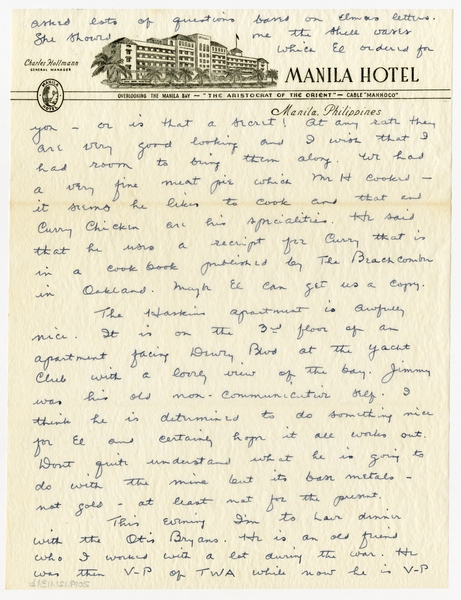 asked lots of questions based on Elmas letters.
She showed me the shell vases
which El ordered for
Charles Hollmann
GENERAL MANAGER
MANILA HOTEL
OVERLOOKING THE MANILA BAY — "THE ARISTOCRAT OF THE ORIENT" — CABLE "MANHOCO"
Manila, Philippines
you – or is that a secret! At any rate they
are very good looking and I wish that I
had room to bring them along. We had
a very fine meat pie which Mr H cooked –
it seems he likes to cook and that and
Curry Chicken are his specialities. He said
that he uses a receipt for Curry that is
in a cook book published by The Beachcomber
in Oakland. Maybe El can get us a copy.
The Haskins apartment is awfully
nice. It is on the 3rd floor of an
apartment facing Dewey Blvd at the Yacht
Club with a lovely view of the bay. Jimmy
was his old non-communicative self. I
think he is determined to do something nice
for El and certainly hope it all works out.
Dont quite understand what he is going to
do with the mine but its base metals –
not gold – at least not for the present.
This evening I'm to have dinner
with the Otis Bryans. He is an old friend
who I worked with a lot during the war. He
was then V-P of TWA while now he is V-P